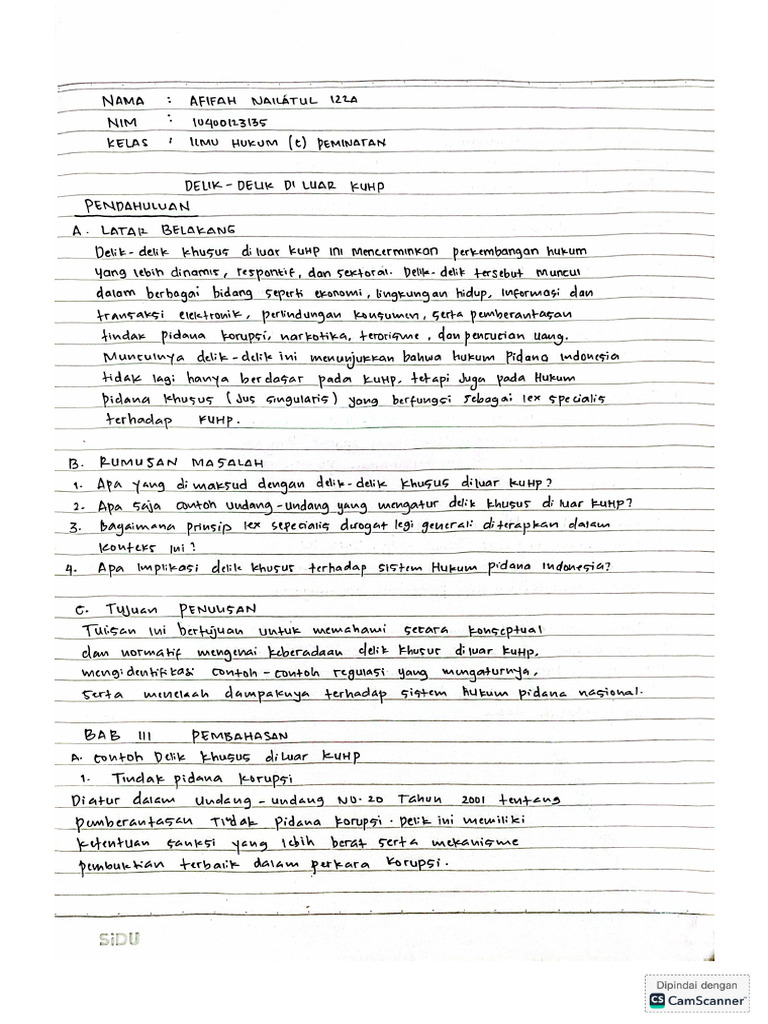 NAMA : AFIFAH NAILATUL IZZA
NIM : 10400123135
KELAS : ILMU HUKUM (C) PEMINATAN
DELIK-DELIK DI LUAR KUHP
PENDAHULUAN
A. LATAR BELAKANG
Delik-delik khusus diluar KUHP ini mencerminkan perkembangan hukum
yang lebih dinamis, respontif, dan sektoral. Delik-delik tersebut muncul
dalam berbagai bidang seperti ekonomi, lingkungan hidup, informasi dan
transaksi elektronik, perlindungan konsumen, serta pemberantasan
tindak pidana korupsi, narkotika, terorisme, dan pencucian uang.
Munculnya delik-delik ini menunjukkan bahwa hukum Pidana Indonesia
tidak lagi hanya berdasar pada KUHP, tetapi juga pada Hukum
pidana khusus (Jus singularis) yang berfungsi sebagai lex specialis
terhadap KUHP.
B. RUMUSAN MASALAH
1. Apa yang di maksud dengan delik-delik khusus diluar KUHP?
2. Apa saja contoh undang-undang yang mengatur delik khusus di luar KUHP?
3. Bagaimana prinsip lex sepecialis derogat legi generali diterapkan dalam
konteks ini?
4. Apa Implikasi delik khusus terhadap sistem Hukum pidana Indonesia?
C. TUJUAN PENULISAN
Tulisan ini bertujuan untuk memahami secara konseptual
dan normatif mengenai keberadaan delik khusus diluar KUHP,
mengidentifikasi contoh-contoh regulasi yang mengaturnya,
serta menelaah dampaknya terhadap sistem hukum pidana nasional.
BAB III PEMBAHASAN
A. Contoh Delik khusus diluar KUHP
1. Tindak pidana korupsi
Diatur dalam Undang-undang NO.20 Tahun 2001 tentang
pemberantasan Tidak Pidana Korupsi. Delik ini memiliki
ketentuan sanksi yang lebih berat serta mekanisme
pembuktian terbalik dalam perkara korupsi.
SiDU
Dipindai dengan
CS CamScanner